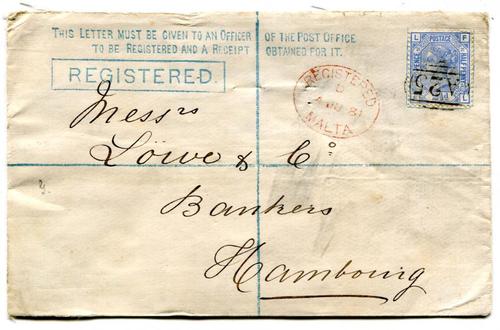 THIS LETTER MUST BE GIVEN TO AN OFFICER OF THE POST OFFICE
TO BE REGISTERED AND A RECEIPT OBTAINED FOR IT.
REGISTERED.
L POSTAGE F
HALFPENNY
F L
A25
REGISTERED
D
81
MALTA
Messrs
Löwe & Co
Bankers
Hambourg